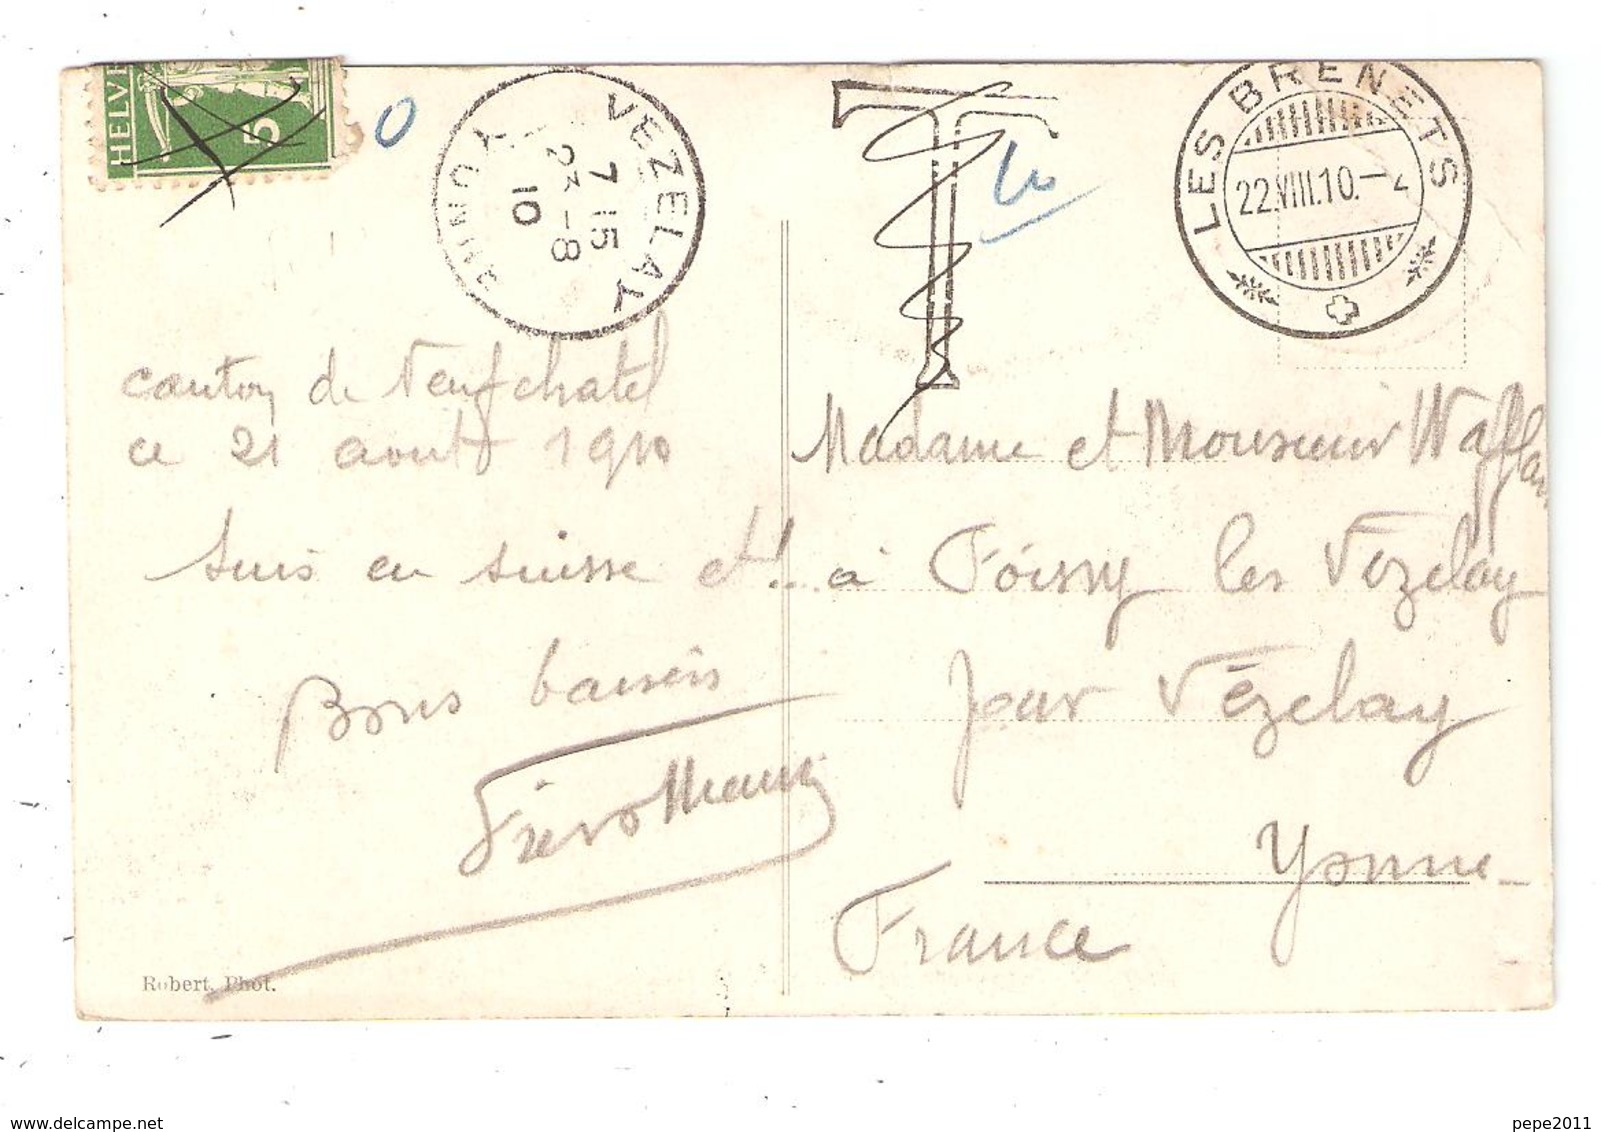 HELVE
5
VEZELAY
7 15
23 -8
10
YONNE
T
LES BRENETS
22.VIII.10.
canton de Neufchatel
ce 21 aout 1910
Suis en suisse et!..
Bons baisers
Robert, Phot.
Madame et Monsieur
à Foissy les Vézelay
par Vézelay
Yonne
France
pepe2011